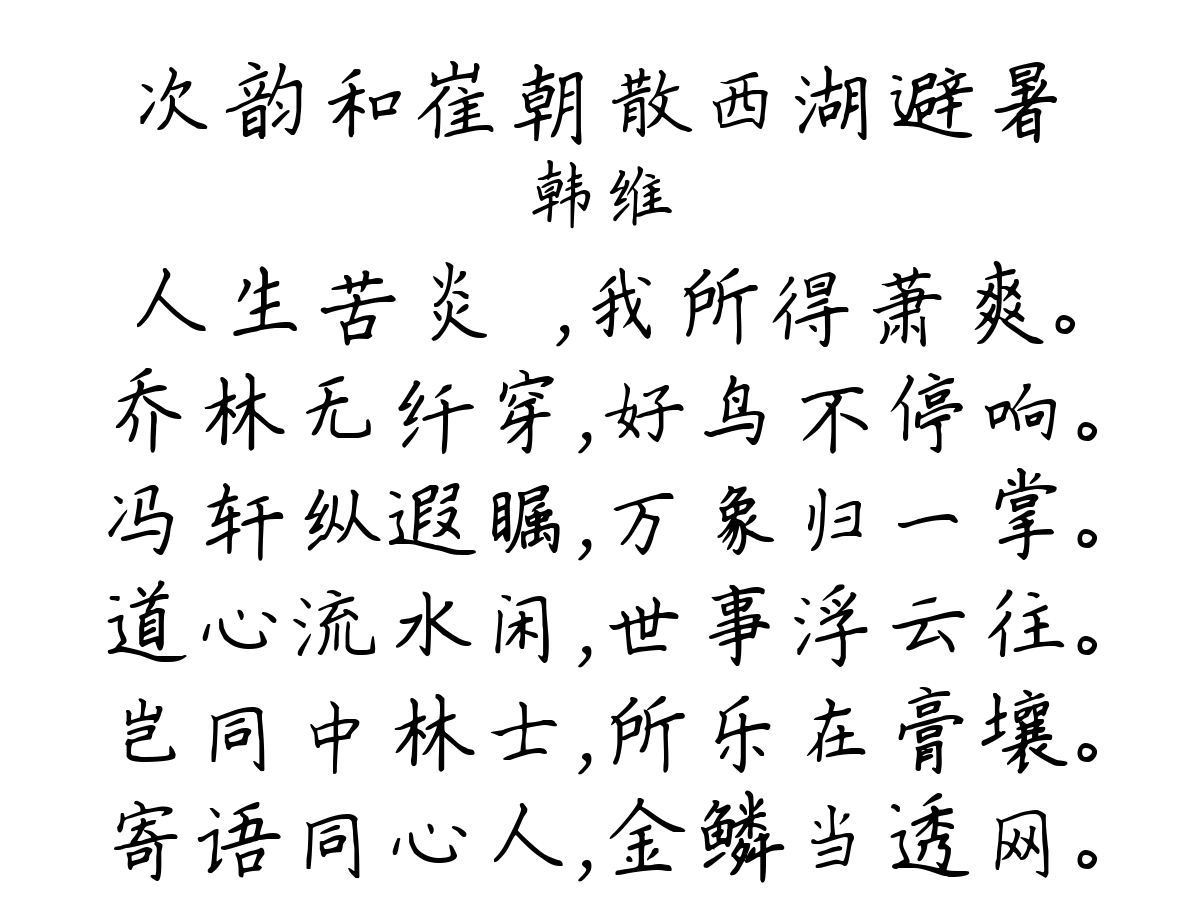 次韵和崔朝散西湖避暑
韩维
人生苦炎 ,我所得萧爽。
乔林无纤穿,好鸟不停响。
冯轩纵遐瞩,万象归一掌。
道心流水闲,世事浮云往。
岂同中林士,所乐在膏壤。
寄语同心人,金鳞当透网。